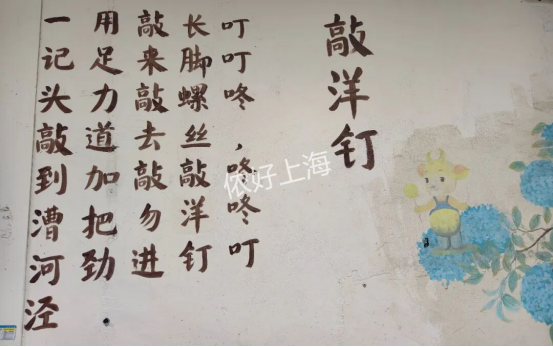 敲洋钉
叮叮咚，咚咚叮
长脚螺丝敲洋钉
敲来敲去敲勿进
用足力道加把劲
一记头敲到漕河泾
侬好上海